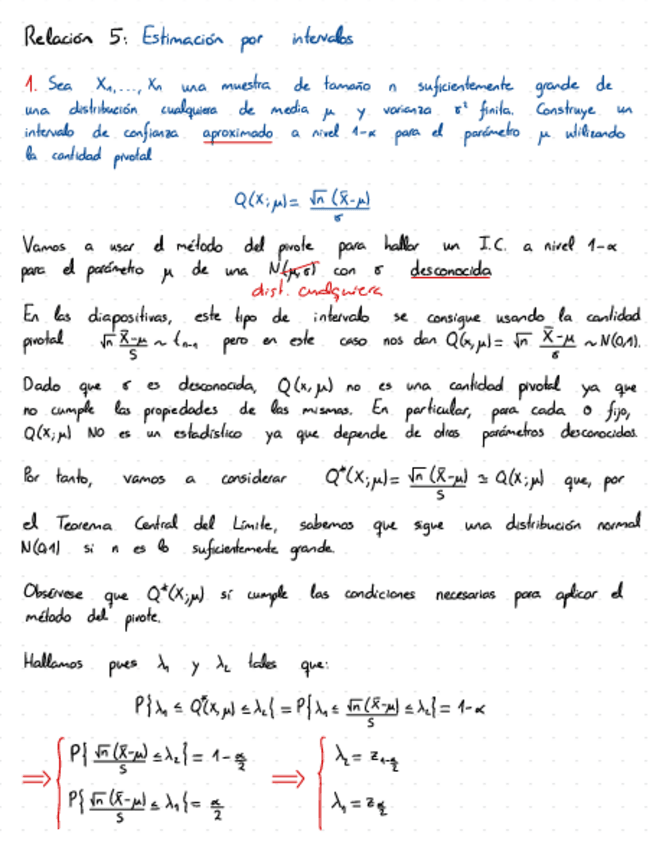 Relación 5: Estimación por intervalos
1. Sea X₁,..., Xₙ una muestra de tamaño n suficientemente grande de
una distribución cualquiera de media μ y varianza σ² finita. Construye un
intervalo de confianza aproximado a nivel 1-α para el parámetro μ utilizando
la cantidad pivotal
Q(X;μ)= √n (X̄-μ)/σ
Vamos a usar el método del pivote para hallar un I.C. a nivel 1-α
para el parámetro μ de una N(μ,σ) con σ desconocida
dist. cualquiera
En las diapositivas, este tipo de intervalo se consigue usando la cantidad
pivotal √n (X̄-μ)/S ~ tₙ₋₁ pero en este caso nos dan Q(x,μ)= √n (X̄-μ)/σ ~ N(0,1).
Dado que σ es desconocida, Q(x,μ) no es una cantidad pivotal ya que
no cumple las propiedades de las mismas. En particular, para cada θ fijo,
Q(X;μ) NO es un estadístico ya que depende de otros parámetros desconocidos.
Por tanto, vamos a considerar Q*(X;μ)= √n (X̄-μ)/S ≃ Q(X;μ) que, por
el Teorema Central del Límite, sabemos que sigue una distribución normal
N(0,1) si n es lo suficientemente grande.
Obsérvese que Q*(X;μ) sí cumple las condiciones necesarias para aplicar el
método del pivote.
Hallamos pues λ₁ y λ₂ tales que:
P{λ₁ ≤ Q*(X,μ) ≤ λ₂} = P{λ₁ ≤ √n (X̄-μ)/S ≤ λ₂} = 1-α
⟹ { P{√n (X̄-μ)/S ≤ λ₂} = 1-α/2 ⟹ { λ₂ = z₁₋α/₂
P{√n (X̄-μ)/S ≤ λ₁} = α/2 λ₁ = zα/₂